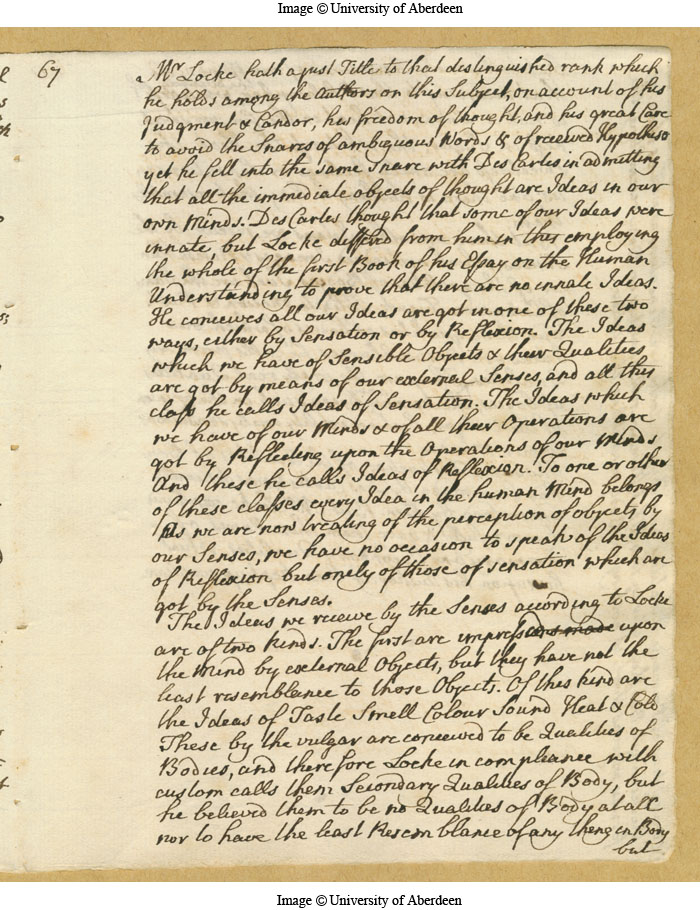 Image © University of Aberdeen
67
Mr Locke hath a just Title to that distinguished rank which
he holds among the Authors on this Subject, on account of his
Judgment & Candor, his freedom of thought, and his great Care
to avoid the Snares of ambiguous Words & of received Hypotheses
yet he fell into the same Snare with Des Cartes in admitting
that all the immediate objects of thought are Ideas in our
own Minds. Des Cartes thought that some of our Ideas were
innate but Locke differed from him in this employing
the whole of the first Book of his Essay on the Human
Understanding to prove that there are no innate Ideas.
He conceives all our Ideas are got in one of these two
ways, either by Sensation or by Reflexion. The Ideas
which we have of Sensible Objects & their Qualities
are got by means of our external Senses, and all this
class he calls Ideas of Sensation. The Ideas which
we have of our Minds & of all their Operations are
got by Reflecting upon the Operations of our Minds
And these he calls Ideas of Reflexion. To one or other
of these classes every Idea in the human Mind belongs
As we are now treating of the perception of objects by
our Senses, we have no occasion to speak of the Ideas
of Reflexion but onely of those of sensation which are
got by the Senses.
The Ideas we receive by the Senses according to Locke
are of two kinds. The first are impressions made upon
the Mind by external Objects, but they have not the
least resemblance to those Objects. Of this kind are
the Ideas of Taste Smell Colour Sound Heat & Cold
These by the vulgar are conceived to be Qualities of
Bodies, and therefore Locke in compliance with
custom calls them Secondary Qualities of Body, but
he believed them to be no Qualities of Body at all
nor to have the least Resemblance of any thing in Body
but
Image © University of Aberdeen